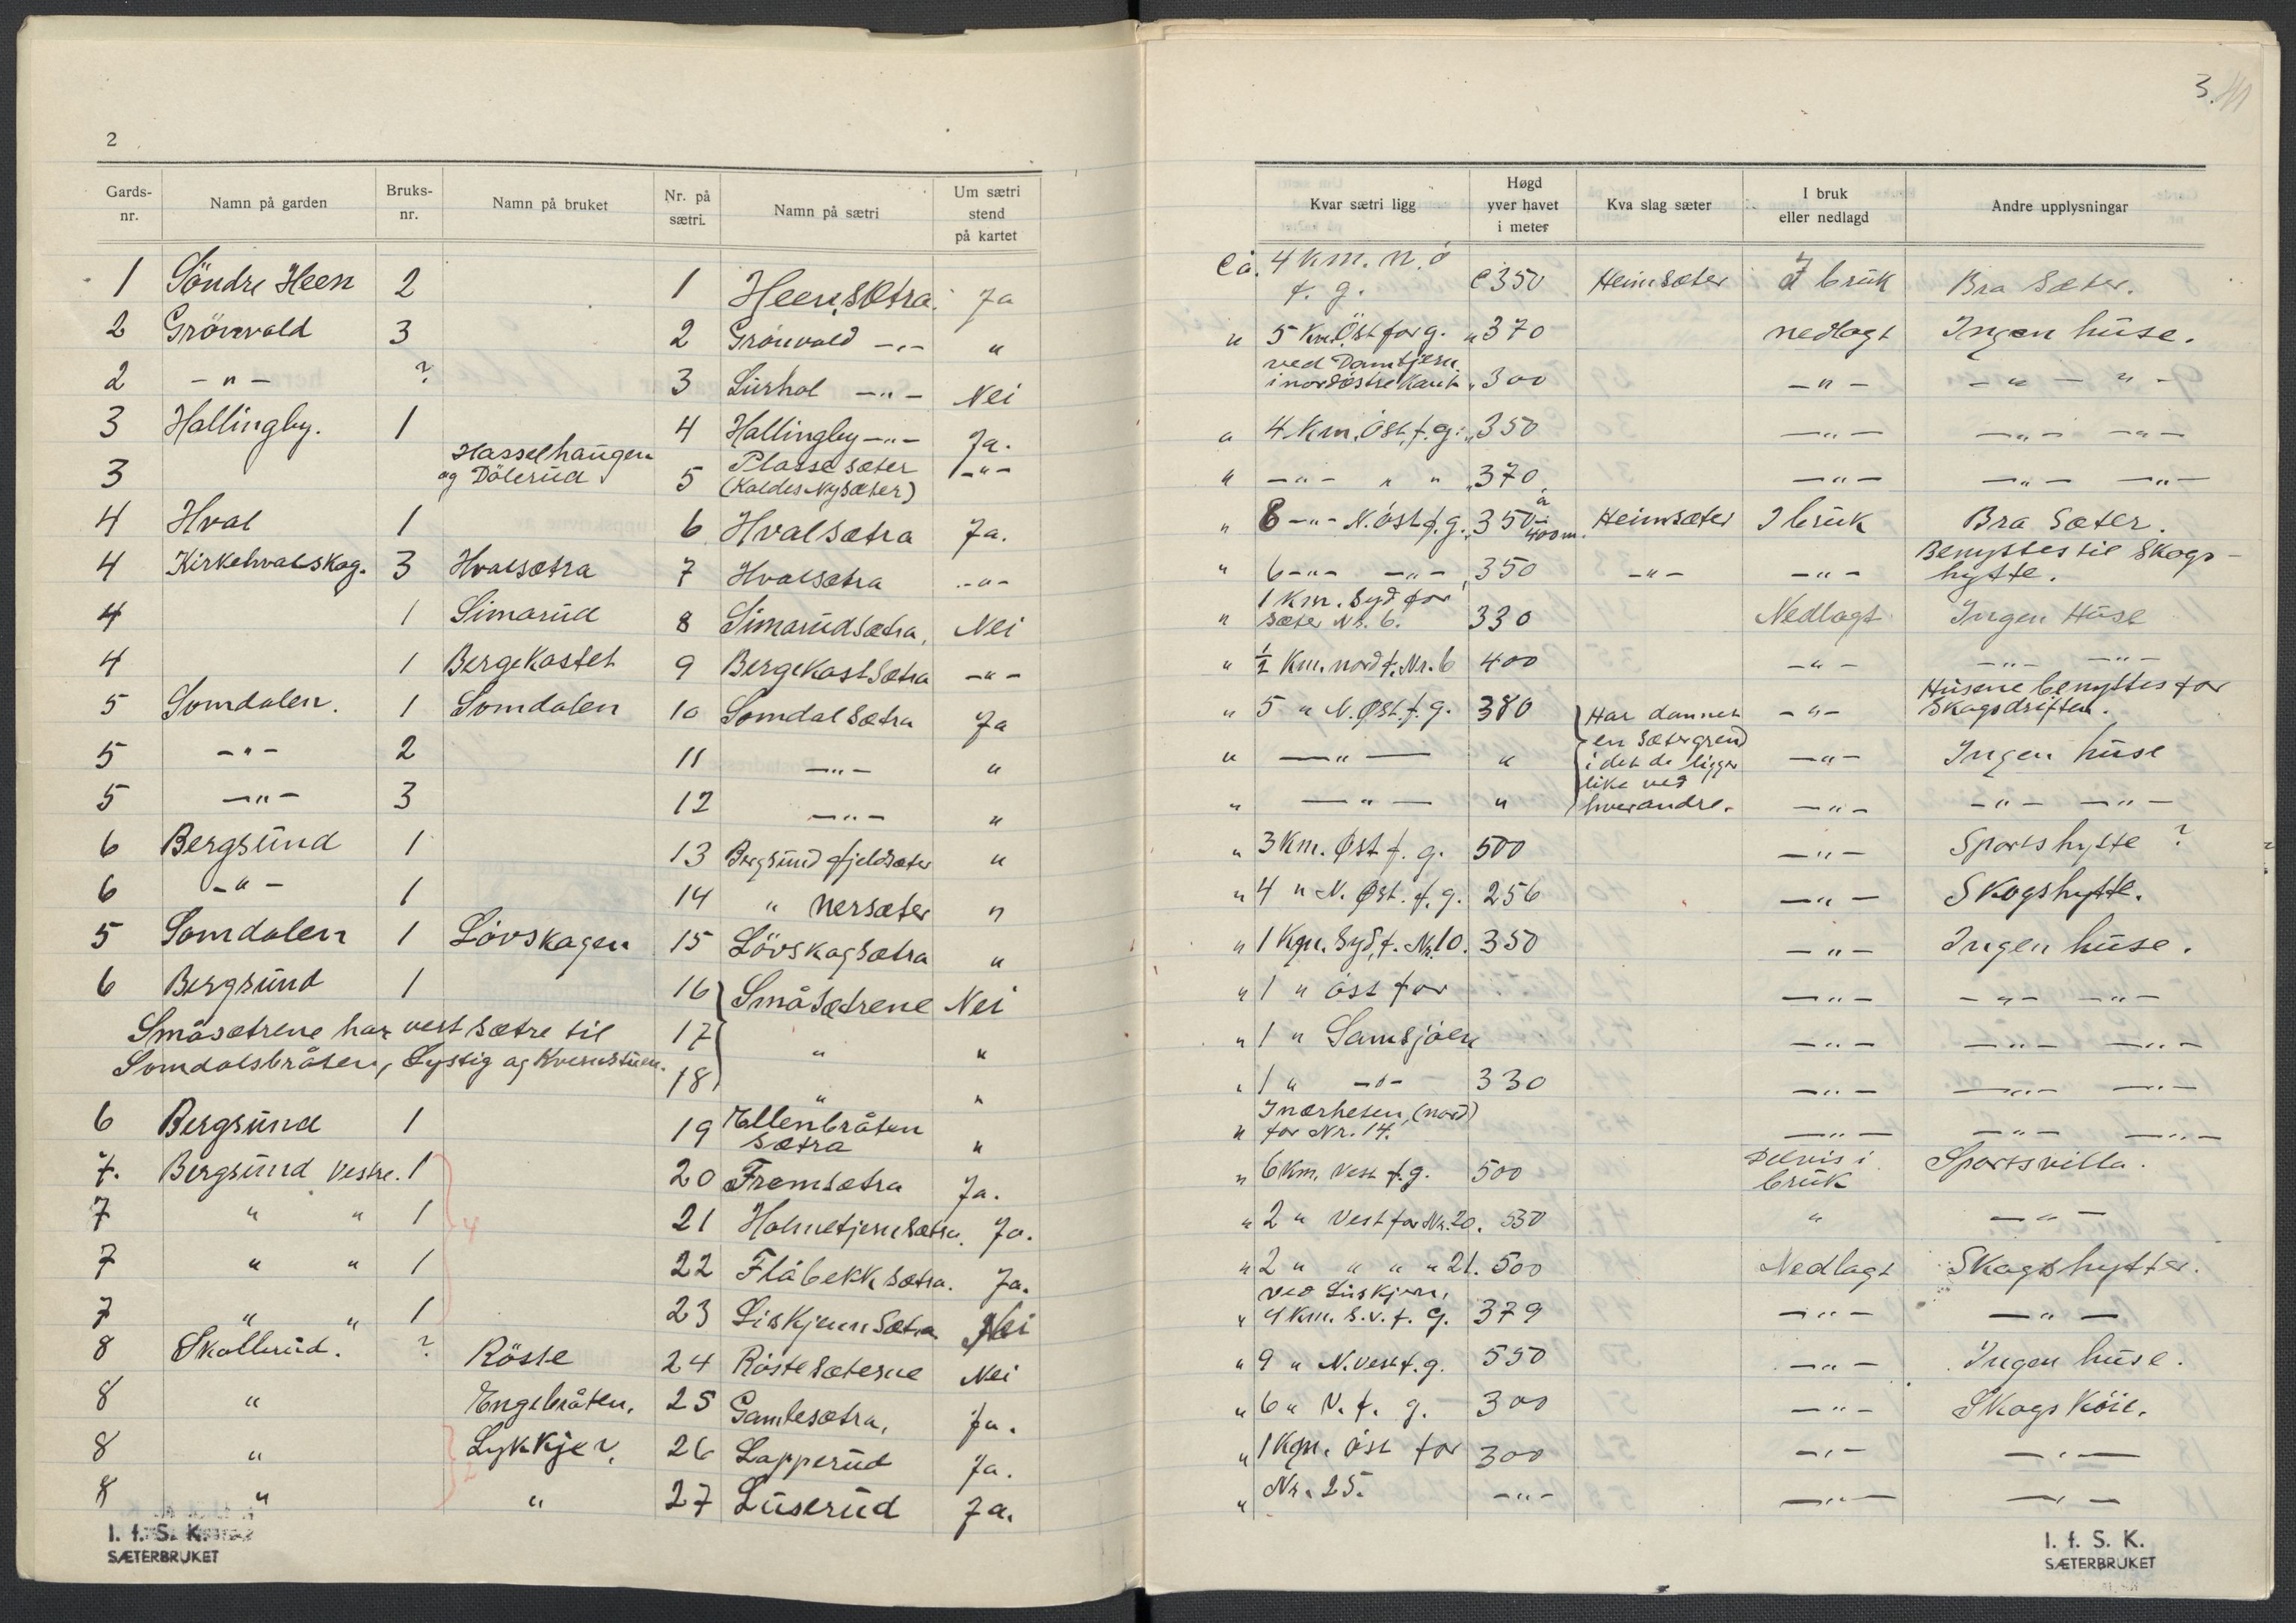 2
Gards-nr. Namn på garden Bruks-nr. Namn på bruket Nr. på sætri. Namn på sætri Um sætri stend på kartet
1 Söndre Heen 2 1 Heen,sætra. Ja
2 Grönvold 3 2 Grönvold -"- "
2 -"- ? 3 Lurhol -"- Nei
3 Hallingby. 1 4 Hallingby -"- Ja.
3 Hasselhaugen og Dölerud 5 Plasse sæter (Kaldes Nysæter) -"-
4 Hval 1 6 Hvalsætra Ja.
4 Kirkehvalskog. 3 Hvalsætra 7 Hvalsætra -"-
4 1 Simarud 8 Simarudsætra, Nei
4 1 Bergekastet 9 Bergekastsætra -"-
5 Somdalen. 1 Somdalen 10 Somdalsætra Ja
5 -"- 2 11 -"- "
5 -"- 3 12 -"- "
6 Bergsund 1 13 Bergsund fjeldsæter "
6 -"- 1 14 " nersæter "
5 Somdalen 1 Lövskagen 15 Lövskagsætra "
6 Bergsund 1 16 Småsætrene Nei
Småsætrene har vest sætre til 17 " "
Somdalsbråten, Lystig og Kvernstuen. 18 " "
6 Bergsund 1 19 Ellenbråten sætra "
7. Bergsund Vestre. 1 20 Fremsætra Ja.
7 " " 1 4 21 Holmetjernsætra. Ja.
7 " " 1 22 Flåbekksætra. Ja.
7 " " 1 23 Liskjernsætra Nei
8 Skollerud. ? Rösse 24 Röste sæterne Nei
8 " Engebråten. 25 Gamlesætra, Ja.
8 " Lykkjer, 26 Lapperud Ja.
8 " 2 " 27 Luserud Ja.
I. f. S. K.
SÆTERBRUKET
3.
Kvar sætri ligg Høgd yver havet i meter Kva slag sæter I bruk eller nedlagd Andre upplysningar
Ca. 4 km. n.ö f. g. C 350 Heimsæter I bruk Bra sæter.
" 5 Km. Öst for g. " 370 nedlagt Ingen huse.
ved Damtjern i nordöstre kant " 300 -"- -"- "-
" 4 Km. öst, f. g. " 350 -"- -"- -"-
" -"- " " " 370 -"- -"- -"-
" 8 -"- N. öst f. g. " 350 à 400 m. Heimsæter I bruk Bra Sæter.
" 6 -"- -"- 350 -"- -"- Benyttes til Skogshytte.
" 1 Km. Syd for sæter Nr. 6. 330 Nedlagt Ingen Huse
" ½ Km. nord f. Nr. 6 400 -"- -"- -"-
" 5 " N. Øst. f. g. 380 Har dannet en sætergrend i det de ligger like ved hverandre. -"- Husene benyttes for Skogsdriften.
" -"- " -"- Ingen huse
" -"- " -"- -"- -"-
" 3 Km. Øst f. g. 500 -"- Sportshytte ?
" 4 " N. Øst. f. g. 256 -"- Skogshytte.
" 1 Km. Syd, f. Nr. 10. 350 -"- Ingen huse.
" 1 " öst for -"- -"- -"-
" 1 " Samsjöen -"- -"- -"-
" 1 " -"- 330 -"- -"- -"-
" I nærheten, (nord) for Nr. 14. -"- -"- -"-
" 6 Km. Vest f. g. 500 Delvis i bruk Sportsvilla.
" 2 " Vest for Nr. 20. 530 " -"-
" 2 " " " " 21. 500 Nedlagt Skogshytter.
" ved Liskjern, 4 Km. S. V. f. g. 379 -"- -"-
" 9 " N. Vest f. g. 550 -"- Ingen huse.
" 6 " N. f. g. 300 -"- Skogs köie.
" 1 Km. öst for 300 -"- -"-
" Nr. 25. -"- -"- -"-
I. f. S. K.
SÆTERBRUKET